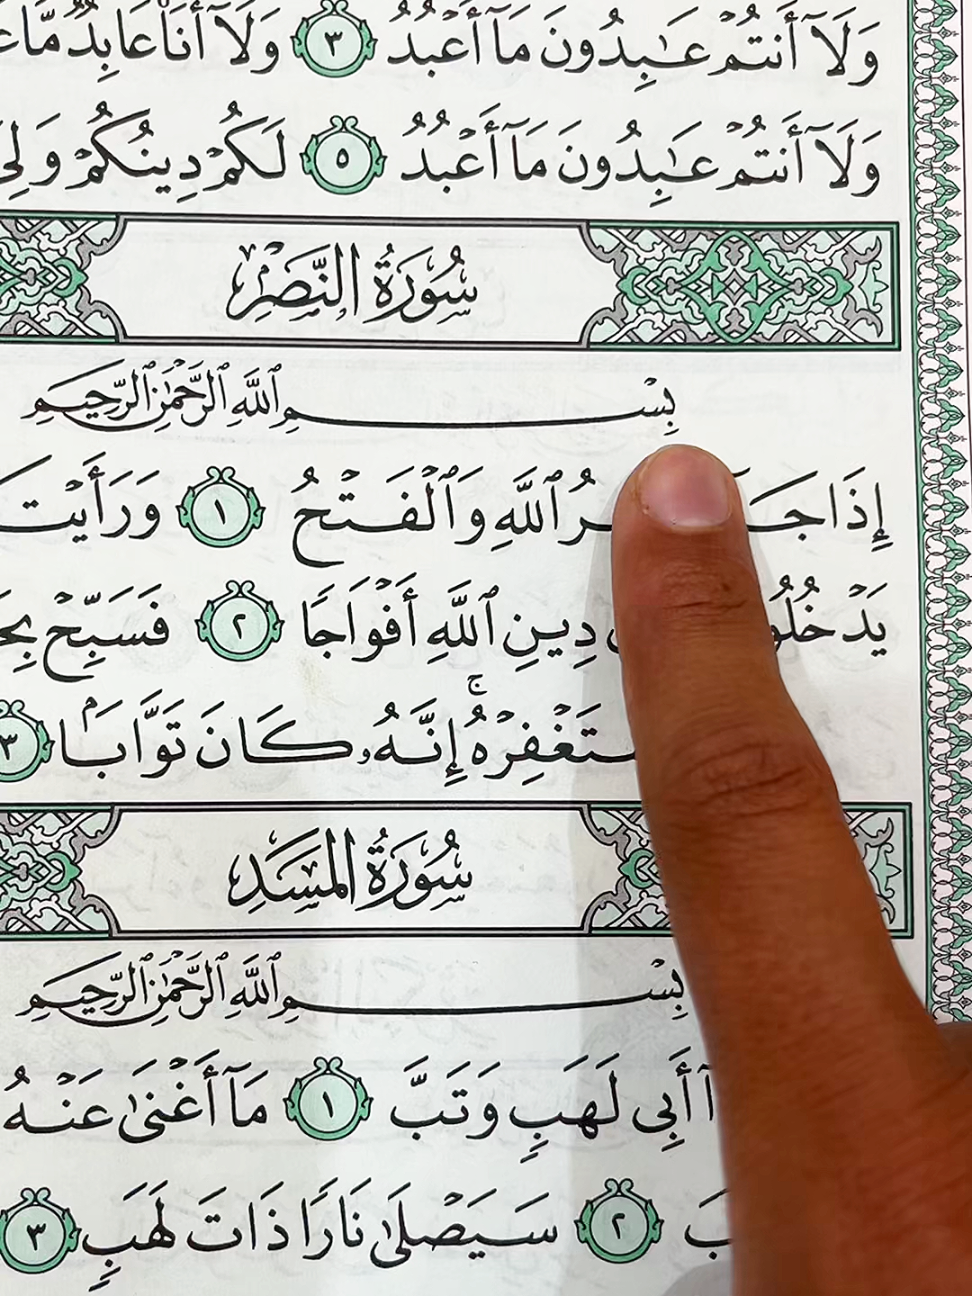 وَلَآ أَنتُمۡ عَٰبِدُونَ مَآ أَعۡبُدُ ٣ وَلَآ أَنَا۠ عَابِدٞ مَّا
وَلَآ أَنتُمۡ عَٰبِدُونَ مَآ أَعۡبُدُ ٥ لَكُمۡ دِينُكُمۡ وَلِيَ
سُورَةُ النَّصۡرِ
بِسۡمِ ٱللَّهِ ٱلرَّحۡمَٰنِ ٱلرَّحِيمِ
إِذَا رُ ٱللَّهِ وَٱلۡفَتۡحُ ١ وَرَأَيۡتَ
دِينِ ٱللَّهِ أَفۡوَاجٗا ٢ فَسَبِّحۡ
إِنَّهُۥ كَانَ تَوَّابَۢا ٣
سُورَةُ المَسَدِ
بِسۡمِ ٱللَّهِ ٱلرَّحۡمَٰنِ ٱلرَّحِيمِ
أَبِي لَهَبٖ وَتَبَّ ١ مَآ أَغۡنَىٰ عَنۡهُ
٢ سَيَصۡلَىٰ نَارٗا ذَاتَ لَهَبٖ ٣